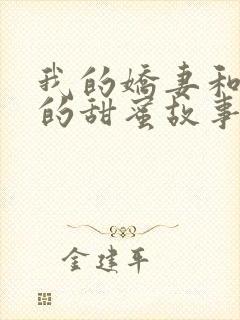 我的嬌妻和
的甜蜜故事
金建平